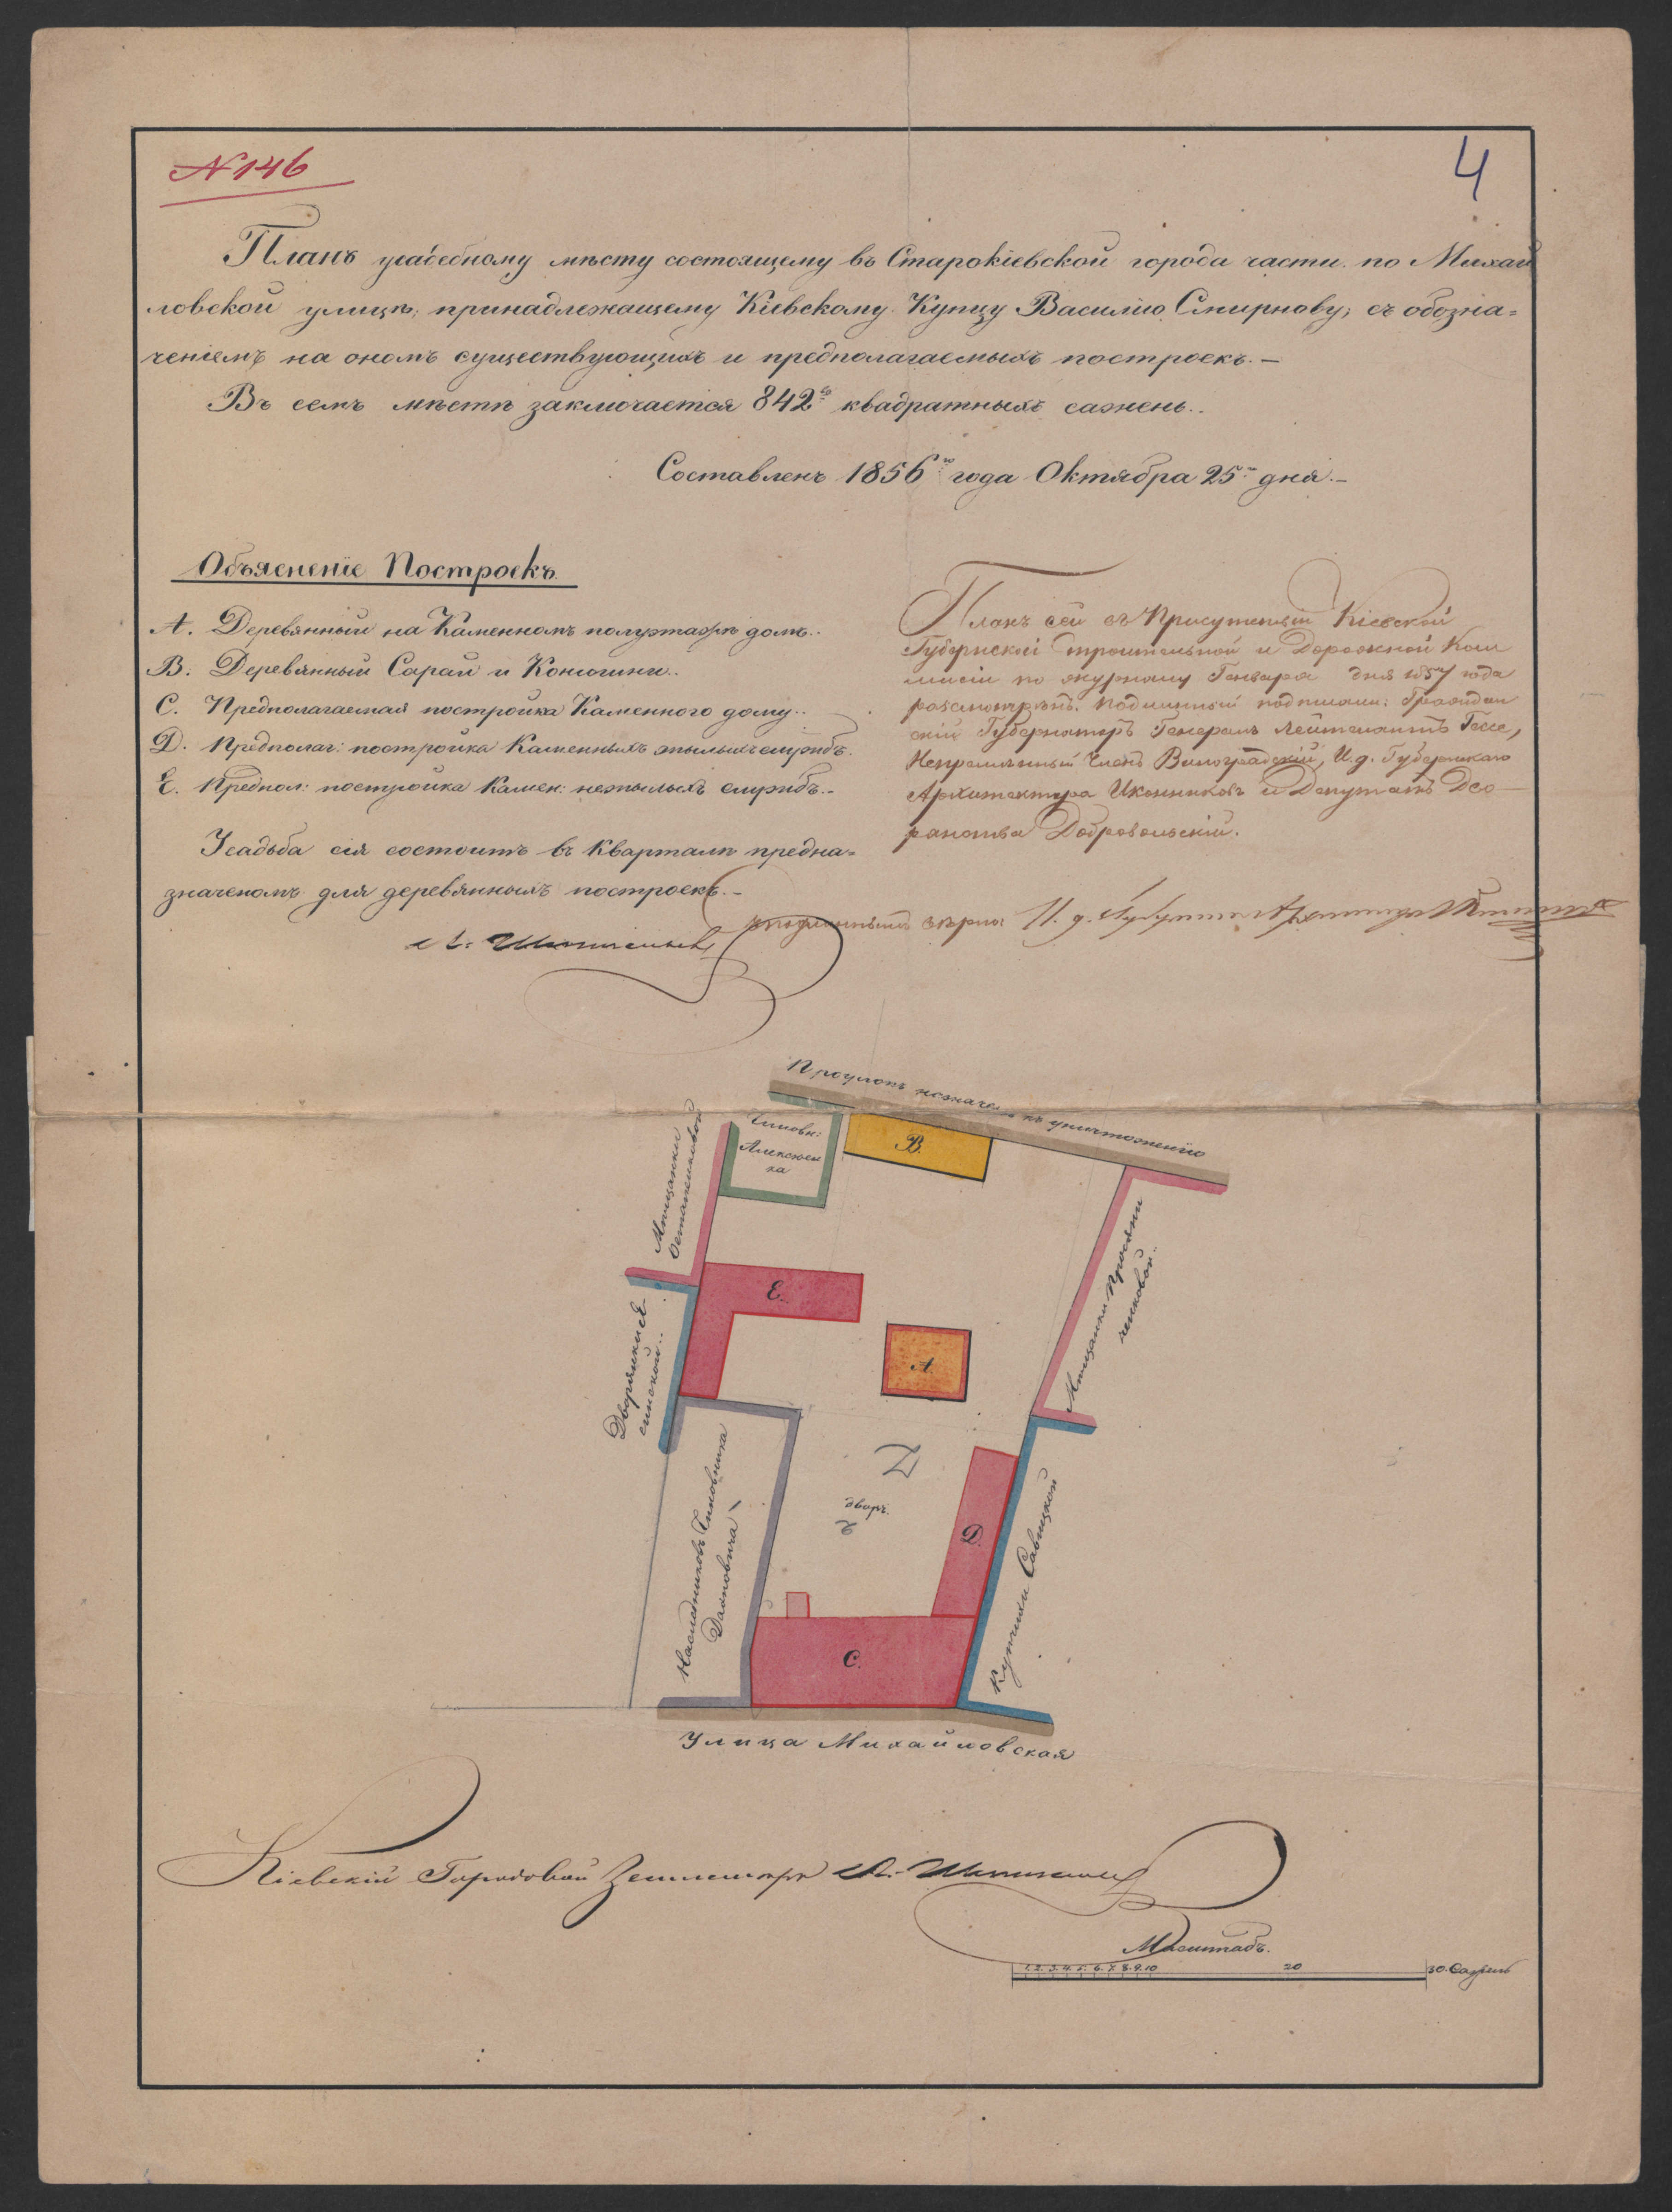 № 146
4
Планъ усадебному мѣсту состоящему въ Старокіевской города части по Михай
ловской улицѣ, принадлежащему Кіевскому Купцу Василію Смирнову, съ обозна=
ченіемъ на ономъ существующихъ и предполагаемыхъ построекъ.—
Въ семъ мѣстѣ заключается 842 квадратныхъ сажень..
Составленъ 1856го года Октября 25го дня.—
Объясненіе Построекъ
А. Деревянный на Каменномъ полуэтажѣ домъ..
B. Деревянный Сарай и Конюшни..
C. Предполагаемая постройка Каменного дому..
D. Предполаг: постройка Каменныхъ жылыхъ службъ.
E. Предпол: постройка Камен: нежылыхъ службъ.–
Усадьба сія состоитъ въ Кварталѣ предна=
значеномъ для деревянныхъ построекъ.–
Планъ сей въ Присутствіи Кіевской
Губернской Строительной и Дорожной Ком
мисіи по журналу Генваря дня 1857 года
разсмотрѣнъ. Подлинный подписали: Граждан
скій Губернаторъ Генералъ Лейтенантъ Гессе,
Непремѣнный Членъ Виноградскій, И. д. Губернскаго
Архитектора Иконниковъ и Депутатъ Дво
рянства Добровольскій.
съ подлиннымъ вѣрно: И. д.
Проулокъ назначенъ къ уничтоженію
Чиновн:
Алексѣен
ка
B.
Мѣщанки
E.
A.
Мѣщанки
ченковой..
Дворянки
Наслѣдниковъ Чиновника
дворъ.
D.
Купчихи Савицкой
C.
Улица Михайловская
Кіевскій Городовой Землемѣръ
Масштабъ.
1. 2. 3. 4. 5. 6. 7. 8. 9. 10 20 30. Сажень